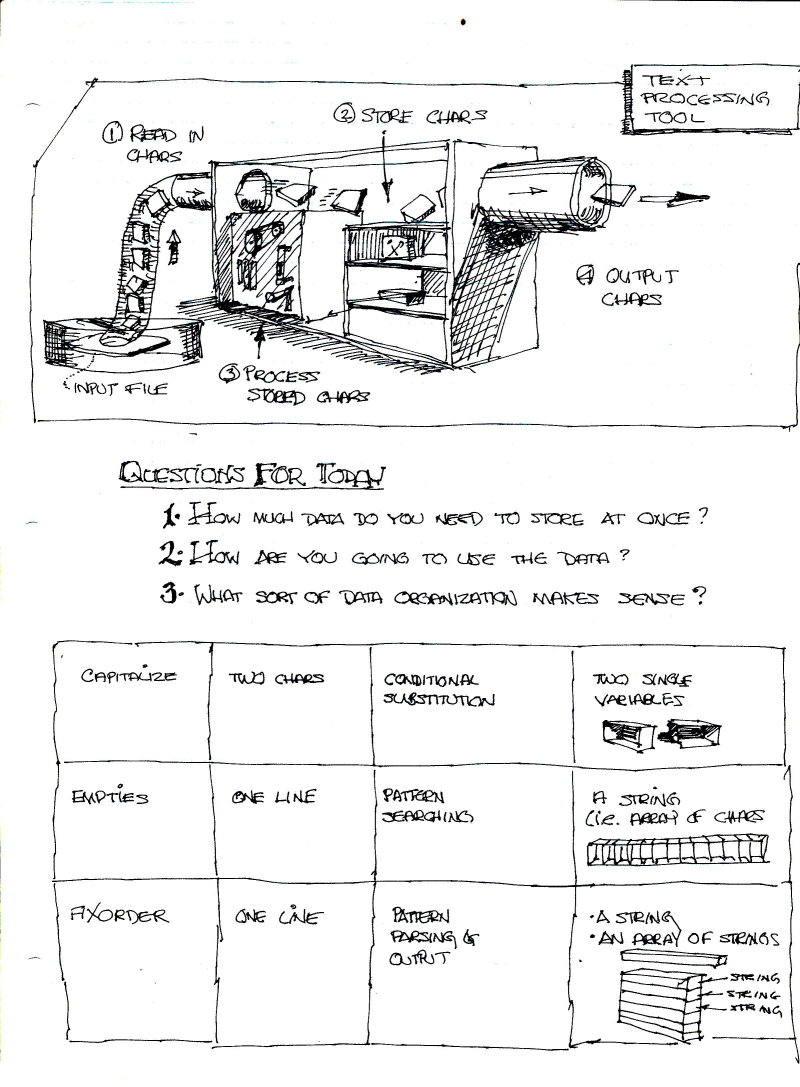 TEXT
PROCESSING
TOOL
① READ IN
CHARS
② STORE CHARS
④ OUTPUT
CHARS
INPUT FILE
③ PROCESS
STORED CHARS
QUESTIONS FOR TODAY
1. HOW MUCH DATA DO YOU NEED TO STORE AT ONCE?
2. HOW ARE YOU GOING TO USE THE DATA?
3. WHAT SORT OF DATA ORGANIZATION MAKES SENSE?
CAPITALIZE
TWO CHARS
CONDITIONAL
SUBSTITUTION
TWO SINGLE
VARIABLES
EMPTIES
ONE LINE
PATTERN
SEARCHING
A STRING
(i.e. ARRAY OF CHARS
FIXORDER
ONE LINE
PATTERN
PARSING &
OUTPUT
• A STRING
• AN ARRAY OF STRINGS
STRING
STRING
STRING